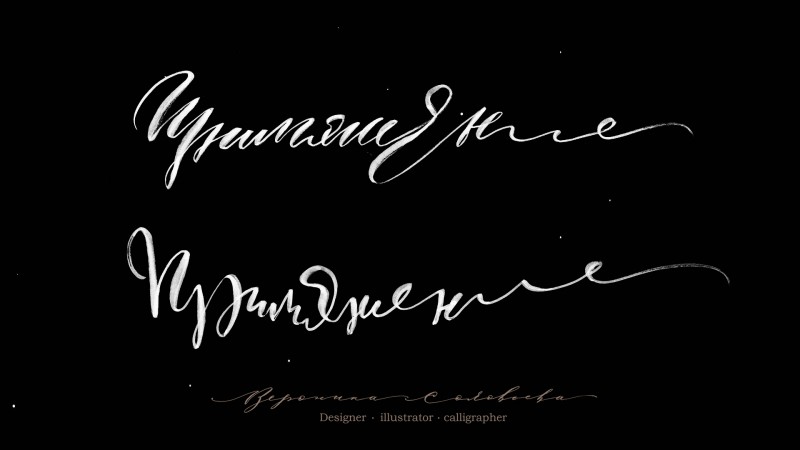 Притяжение
Притяжение
Вероника Соловьева
Designer · illustrator · calligrapher